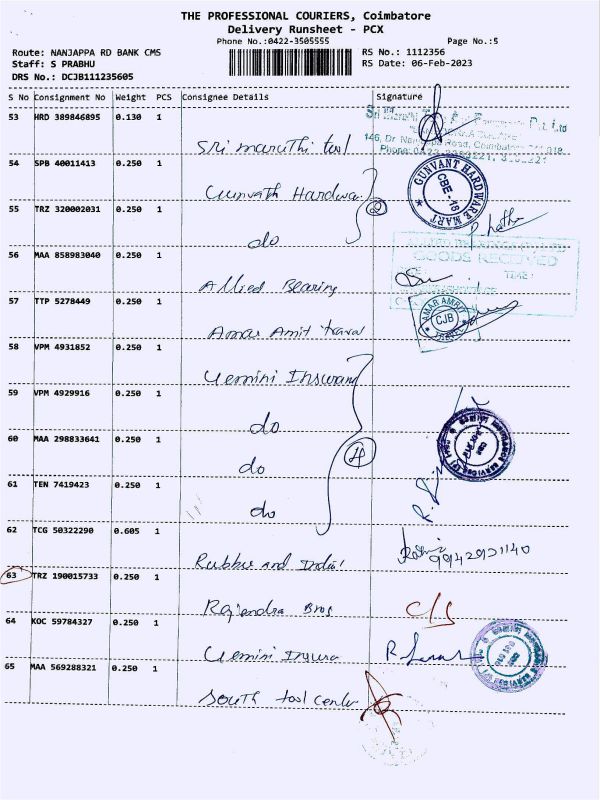 THE PROFESSIONAL COURIERS, Coimbatore
Delivery Runsheet - PCX
Phone No.:0422-3505555
Page No.:5
Route: NANJAPPA RD BANK CMS
RS No.: 1112356
Staff: S PRABHU
RS Date: 06-Feb-2023
DRS No.: DCJB111235605
S No Consignment No Weight PCS Consignee Details Signature
53 HRD 389846895 0.130 1
Sri maruthi tool
54 SPB 40011413 0.250 1
Gunvath Hardwar
GUNVANT HARDWARE MART
CBE - 18
55 TRZ 320002031 0.250 1
2
do
56 MAA 858983040 0.250 1
GOODS RECEIVED
TIME:
Allied Bearing
57 TTP 5278449 0.250 1
AMAR AMRIT
CJB
Amar Amit travel
58 VPM 4931852 0.250 1
Gemini Inswang
59 VPM 4929916 0.250 1
do
60 MAA 298833641 0.250 1
4
do
61 TEN 7419423 0.250 1
do
62 TCG 50322290 0.605 1
Rubber and Indial
63 TRZ 190015733 0.250 1
Rajendra Bros
C/S
64 KOC 59784327 0.250 1
Gemini Insura
65 MAA 569288321 0.250 1
South tool center